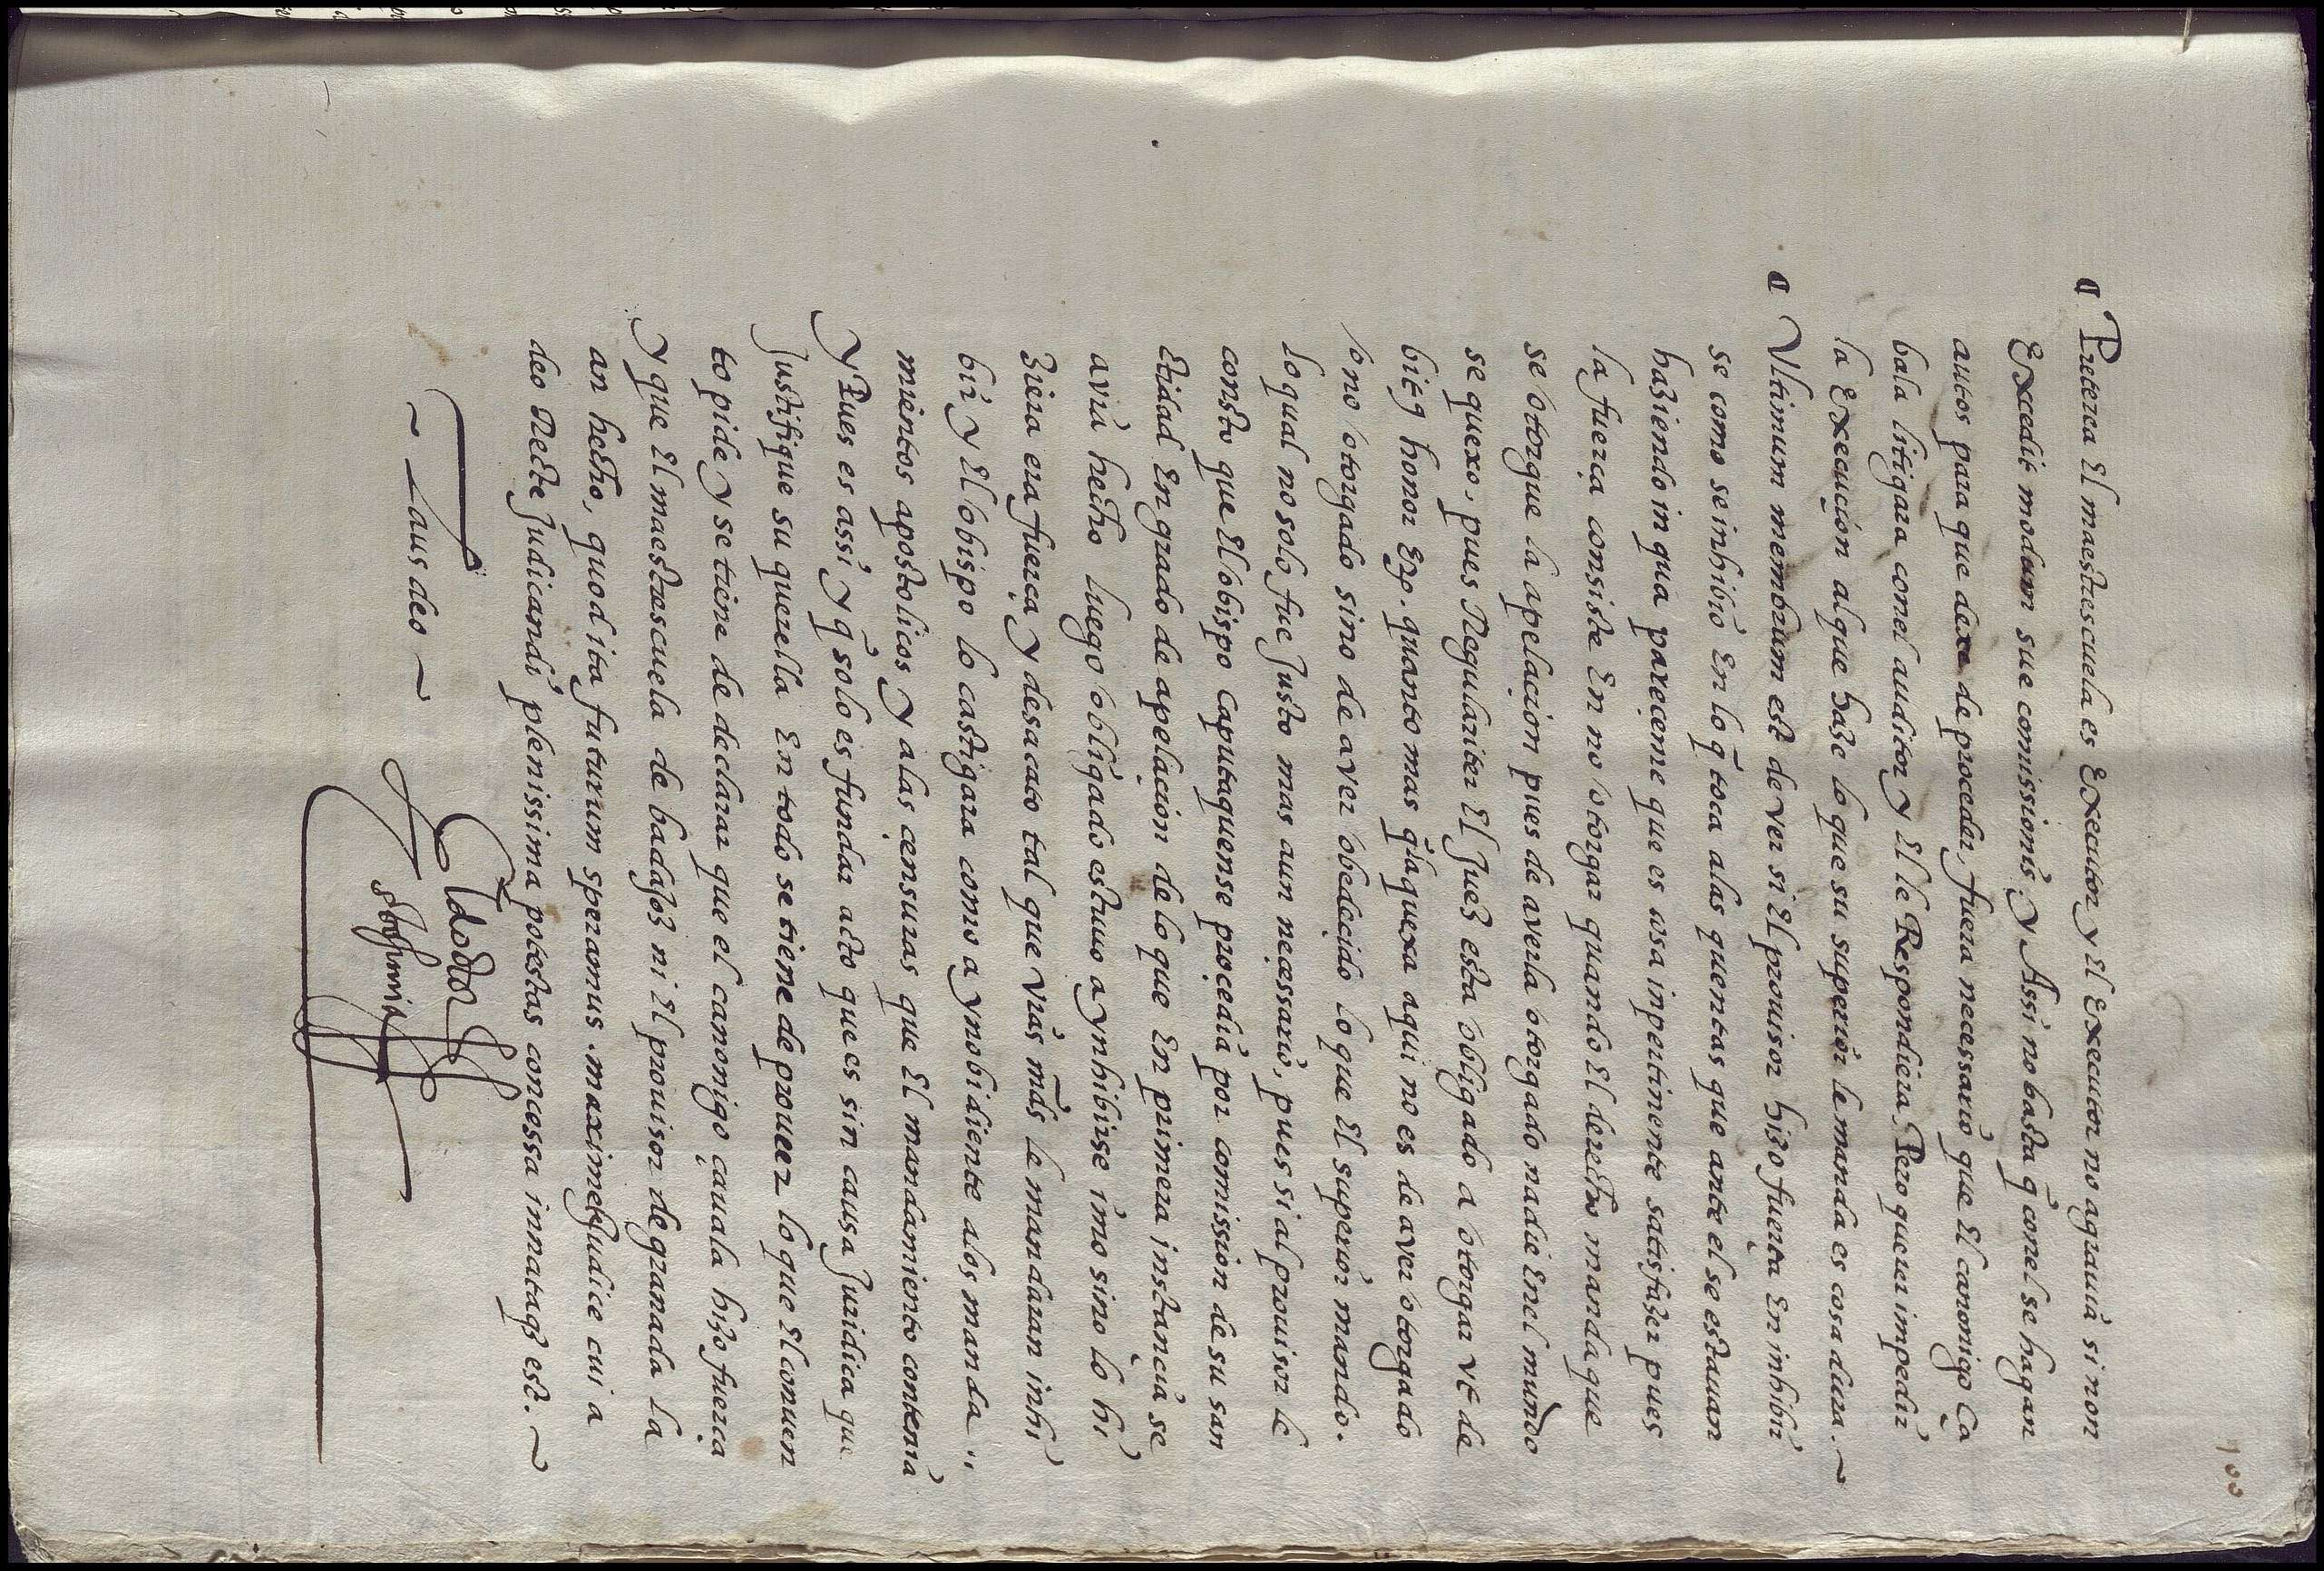 100
Preterea El maestrescuela es Executor y El Executor no agrauia si non
Excedit modum sue comissionis, y Assi no basta q̄ conel se hagan
autos para que dexe de proceder, fuera necessario que El canonigo Ca
bala litigara conel auditor y El le Respondiera, Pero querer impedir
la Execuçion alque haze lo que su superior le manda es cosa dura. ~
Vltimum membrum est de ver si El prouisor hizo fuerça En inhibir
se como se inhibio En lo q̄ toca alas quentas que ante el se estauan
haziendo in qua pareçeme que es cosa inpertinente satisfazer pues
la fuerça consiste En no otorgar quando El derecho manda que
se otorgue la apelaçion pues de averla otorgado nadie Enel mundo
se quexo, pues Regulariter El Juez esta obligado a otorgar vt de
honor Ergo. quanto mas q̄ la quexa aqui no es de aver otorgado
o no otorgado sino de aver obedeçido lo que El superior mando.
lo qual no solo fue Justo mas aun neçessario, pues si al prouisor le
consto que El obispo caputaquense proçedia por comission de su san
ctidad En grado de apelaçion delo que En primera instançia se
avia hecho luego obligado estuuo a ynhibirse imo sino lo hi
ziera era fuerça y desacato tal que vras mds le mandaran inhi
bir y El obispo lo castigara como a ynobidiente alos manda"
mientos apostolicos y alas çensuras que El mandamiento contenia
Y Pues es assi y q̄ solo es fundar acto que es sin causa Juridica que
Justifique su querella En todo se tiene de proueer lo que El conuen
to pide y se tiene de declarar que el canonigo çauala hizo fuerça
Y que El maestrescuela de badajoz ni El prouisor de granada la
an hecho, quod ita futurum speramus. maxime Judice cui a
deo Recte Judicandi plenissima potestas concessa innataqȝ est. ~
~ Laus deo ~
El doctor